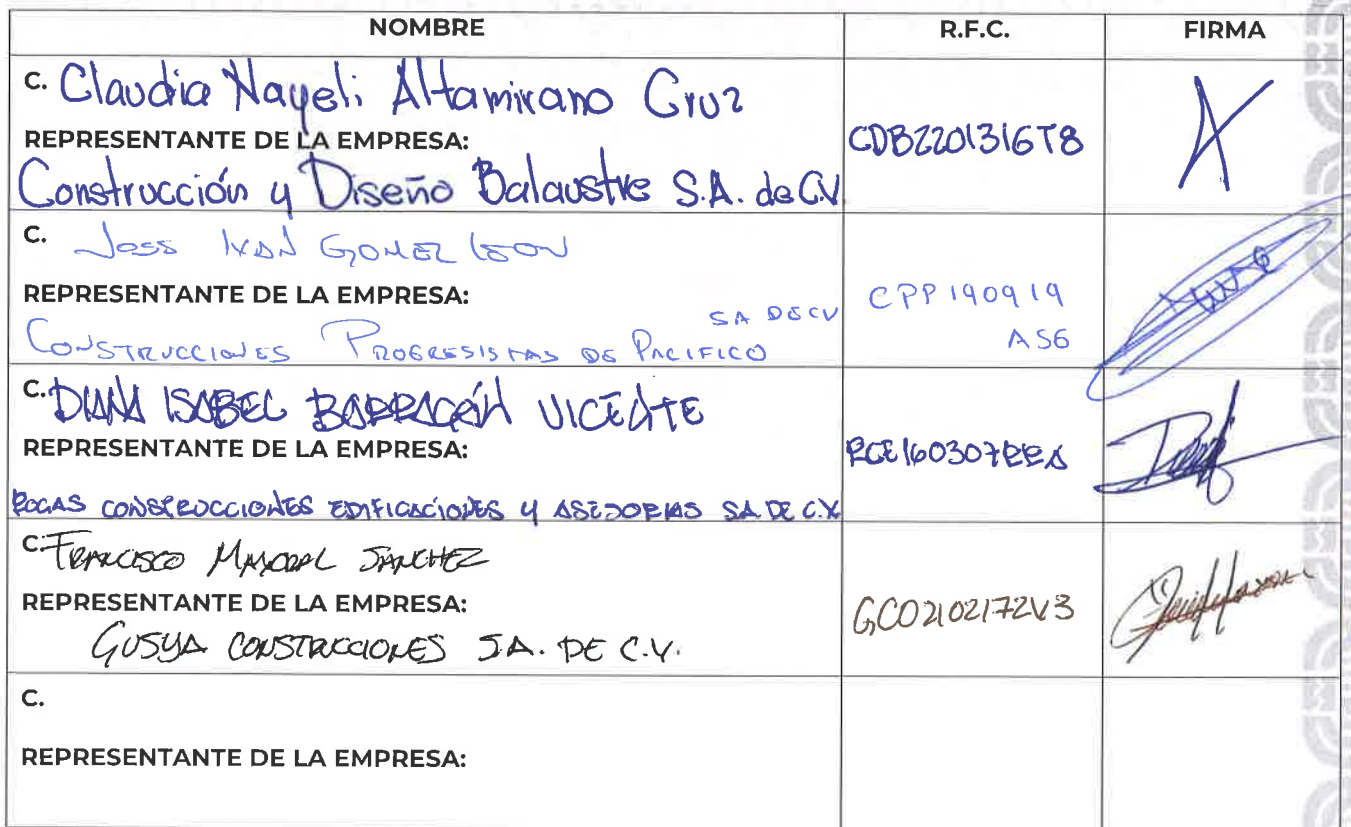 NOMBRE R.F.C. FIRMA
C. Claudia Nayeli Altamirano Cruz
REPRESENTANTE DE LA EMPRESA:
Construcción y Diseño Balaustre S.A. de C.V.
CDB2201316T8
C. Jose IVAN GOMEZ LEON
REPRESENTANTE DE LA EMPRESA:
CONSTRUCCIONES PROGRESISTAS DE PACIFICO SA DE CV
CPP190919
AS6
C. DIANA ISABEL BARRAGÁN VICENTE
REPRESENTANTE DE LA EMPRESA:
ROCAS CONSTRUCCIONES EDIFICACIONES Y ASESORIAS SA. DE C.V.
RCE160307RRA
C. FRANCISCO MAYORAL SANCHEZ
REPRESENTANTE DE LA EMPRESA:
GUSYA CONSTRUCCIONES S.A. DE C.V.
GCO2102172V3
C.
REPRESENTANTE DE LA EMPRESA: